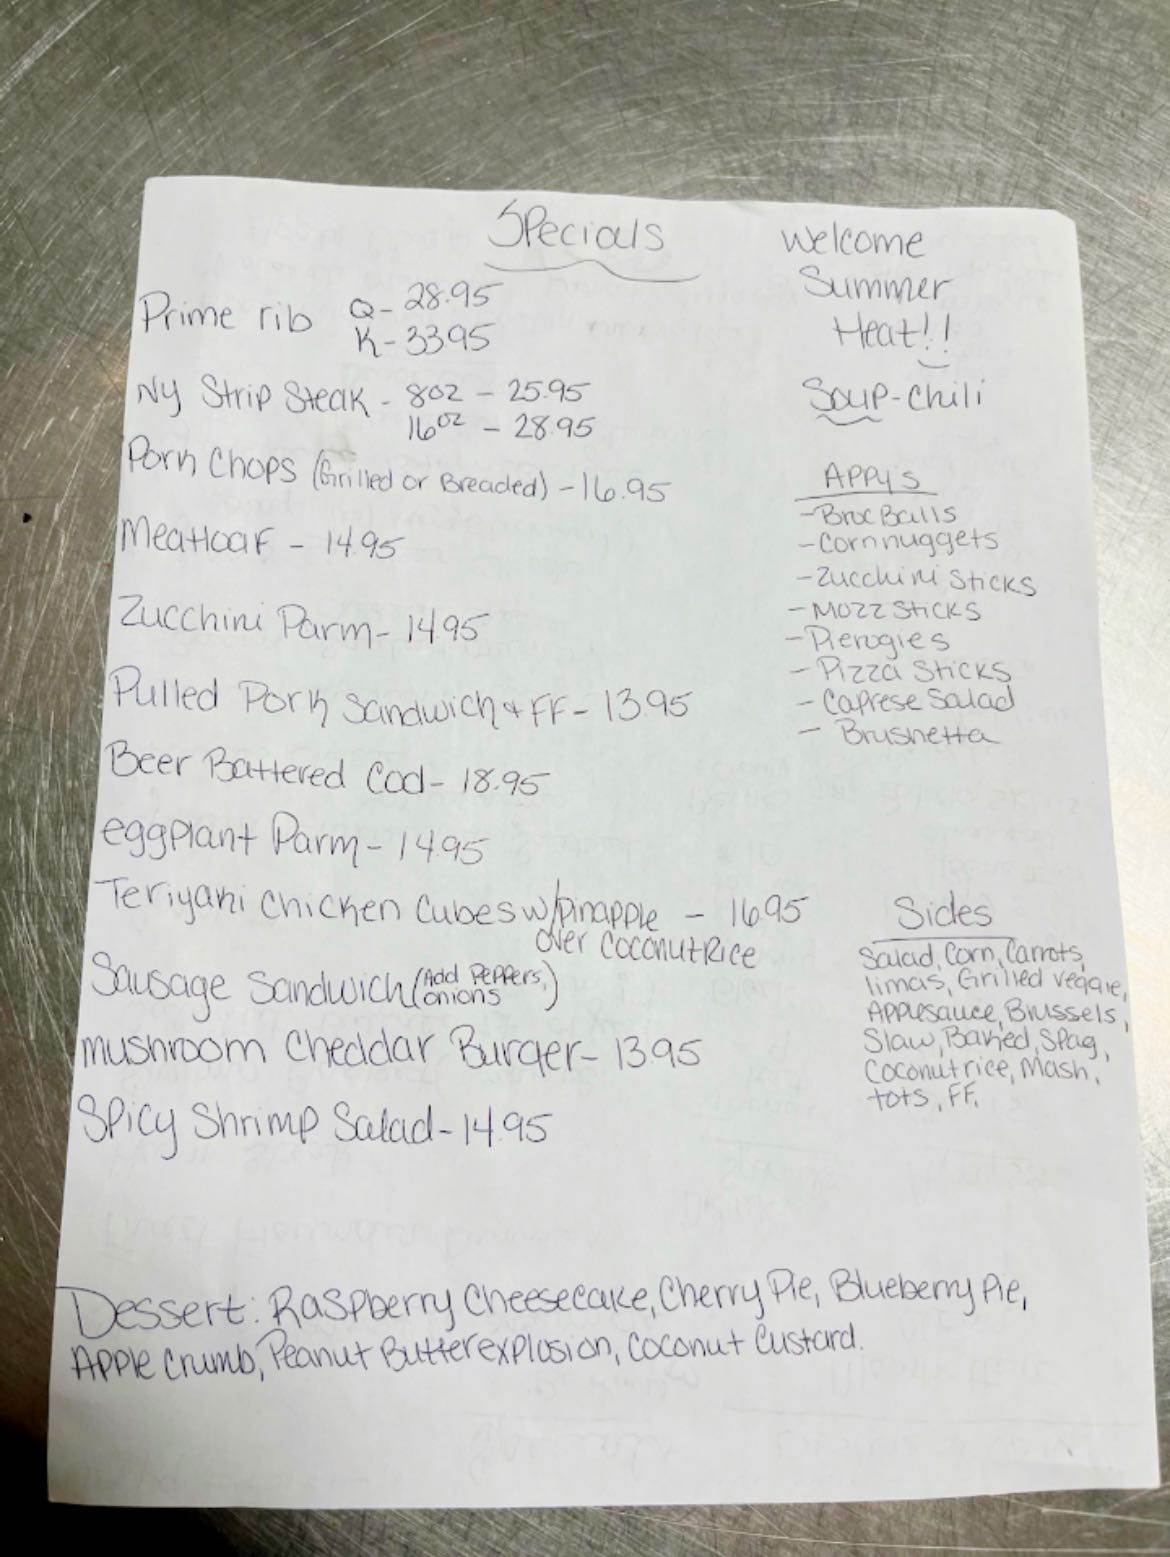 Specials
Prime rib Q- 28.95
K- 33.95
NY Strip Steak - 8oz - 25.95
16oz - 28.95
Pork Chops (Grilled or Breaded) - 16.95
Meatloaf - 14.95
Zucchini Parm - 14.95
Pulled Pork Sandwich & FF - 13.95
Beer Battered Cod - 18.95
eggplant Parm - 14.95
Teriyaki Chicken Cubes w/pinapple - 16.95
over coconut Rice
Sausage Sandwich (Add Peppers,
onions)
mushroom Cheddar Burger - 13.95
Spicy Shrimp Salad - 14.95
Welcome
Summer
Heat!!
Soup - Chili
Appy's
- Broc Balls
- Corn nuggets
- Zucchini Sticks
- Mozz Sticks
- Pierogies
- Pizza Sticks
- Caprese Salad
- Brushetta
Sides
Salad, Corn, Carrots,
limas, Grilled veggie,
Applesauce, Brussels,
Slaw, Baked, Spag,
Coconut rice, Mash,
tots, FF.
Dessert: Raspberry Cheesecake, Cherry Pie, Blueberry Pie,
Apple Crumb, Peanut Butter explosion, Coconut Custard.